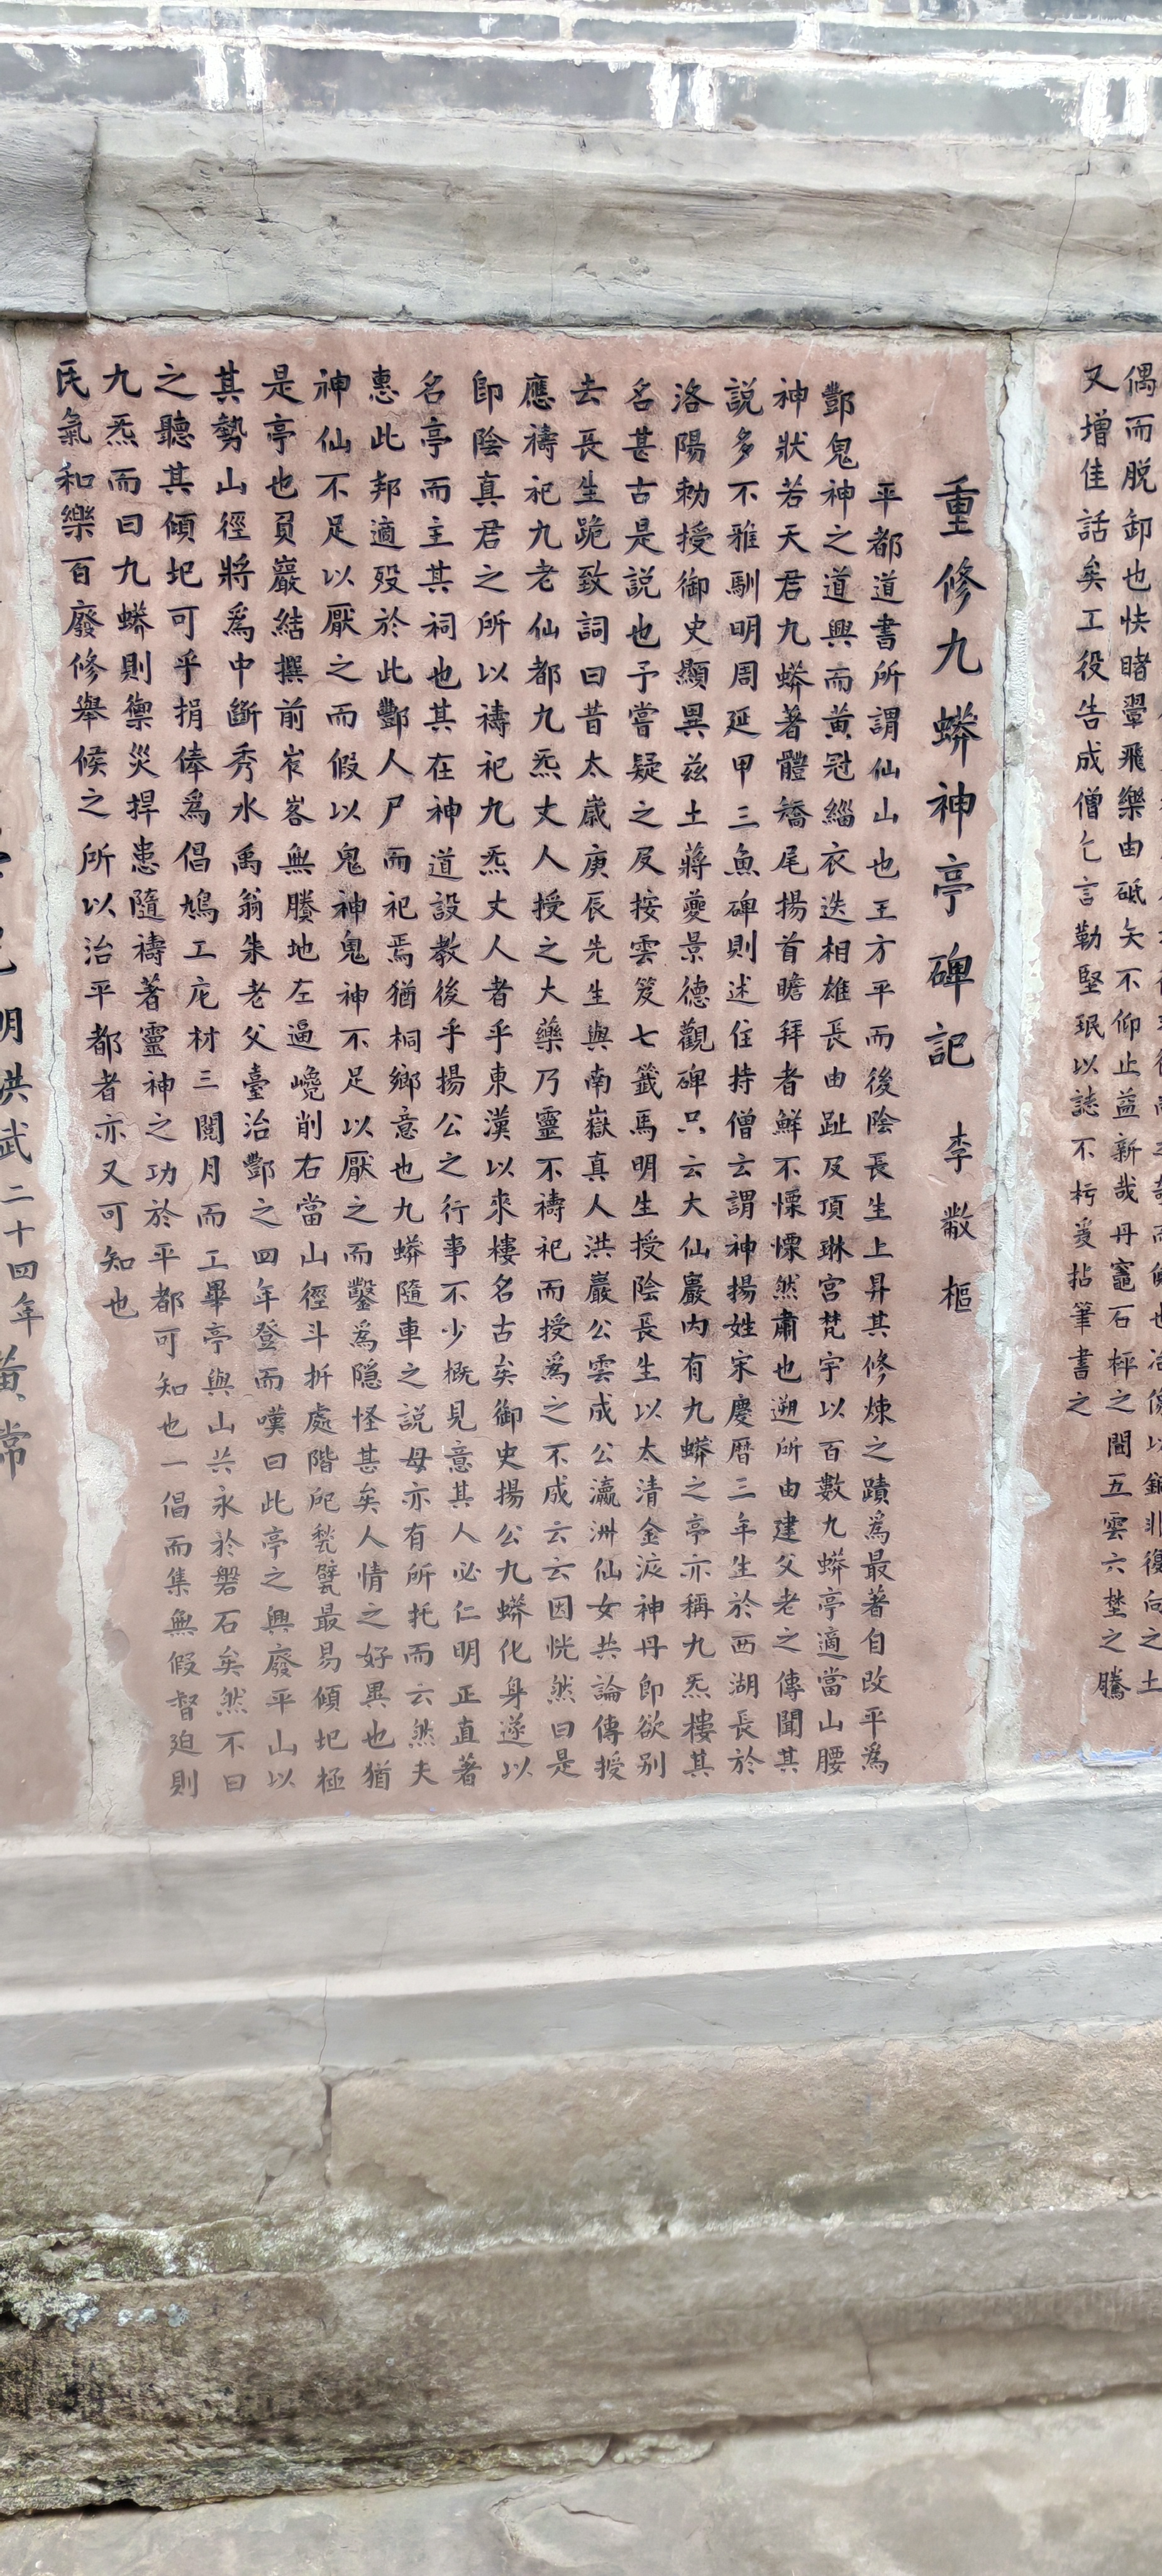 偶而脱卸也快睹翬飛樂由砥矢不仰止益新哉丹竈石枰之間五雲六埜之騰
又增佳話矣工役告成僧乞言勒堅珉以誌不朽爰拈筆書之
重修九蟒神亭碑記 李樧樞
平都道書所謂仙山也王方平而後陰長生上昇其修煉之蹟爲最著自改平爲
酆鬼神之道興而黄冠緇衣迭相雄長由趾及頂琳宫梵宇以百數九蟒亭適當山腰
神狀若天君九蟒著體矯尾揚首瞻拜者鮮不慄慄然肅也遡所由建父老之傳聞其
説多不雅馴明周延甲三魚碑則述住持僧云謂神揚姓宋慶曆三年生於西湖長於
洛陽勅授御史顯異兹土蔣夔景德觀碑只云大仙巖内有九蟒之亭亦稱九炁樓其
名甚古是説也予嘗疑之及按雲笈七籖馬明生授陰長生以太清金液神丹卽欲别
去長生跪致詞曰昔太歳庚辰先生與南嶽真人洪巖公雲成公瀛洲仙女共論傳授
應禱祀九老仙都九炁丈人授之大藥乃靈不禱祀而授爲之不成云云因恍然曰是
卽陰真君之所以禱祀九炁丈人者乎東漢以來樓名古矣御史揚公九蟒化身遂以
名亭而主其祠也其在神道設教後乎揚公之行事不少概見意其人必仁明正直著
惠此邦適殁於此酆人尸而祀焉猶桐鄉意也九蟒隨車之説母亦有所托而云然夫
神仙不足以厭之而假以鬼神鬼神不足以厭之而鑿爲隐怪甚矣人情之好異也猶
是亭也負巖結撰前岝峉無賸地左逼巉削右當山徑斗折處階戺甃甓最易傾圮極
其勢山徑將爲中斷秀水禹翁朱老父臺治酆之四年登而嘆曰此亭之興廢平山以
之聽其傾圯可乎捐俸爲倡鳩工庀材三閲月而工畢亭與山共永於磐石矣然不曰
九炁而曰九蟒則禦災捍患隨禱著靈神之功於平都可知也一倡而集無假督廹則
民氣和樂百廢修舉候之所以治平都者亦又可知也
明洪武二十四年 黄常